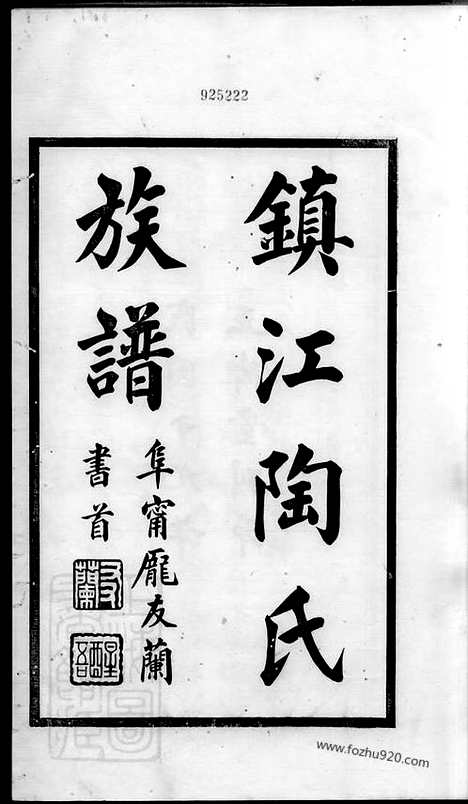 925222
鎮江陶氏
族譜
阜甯龎友蘭
書首
友蘭
www.fozhu920.com